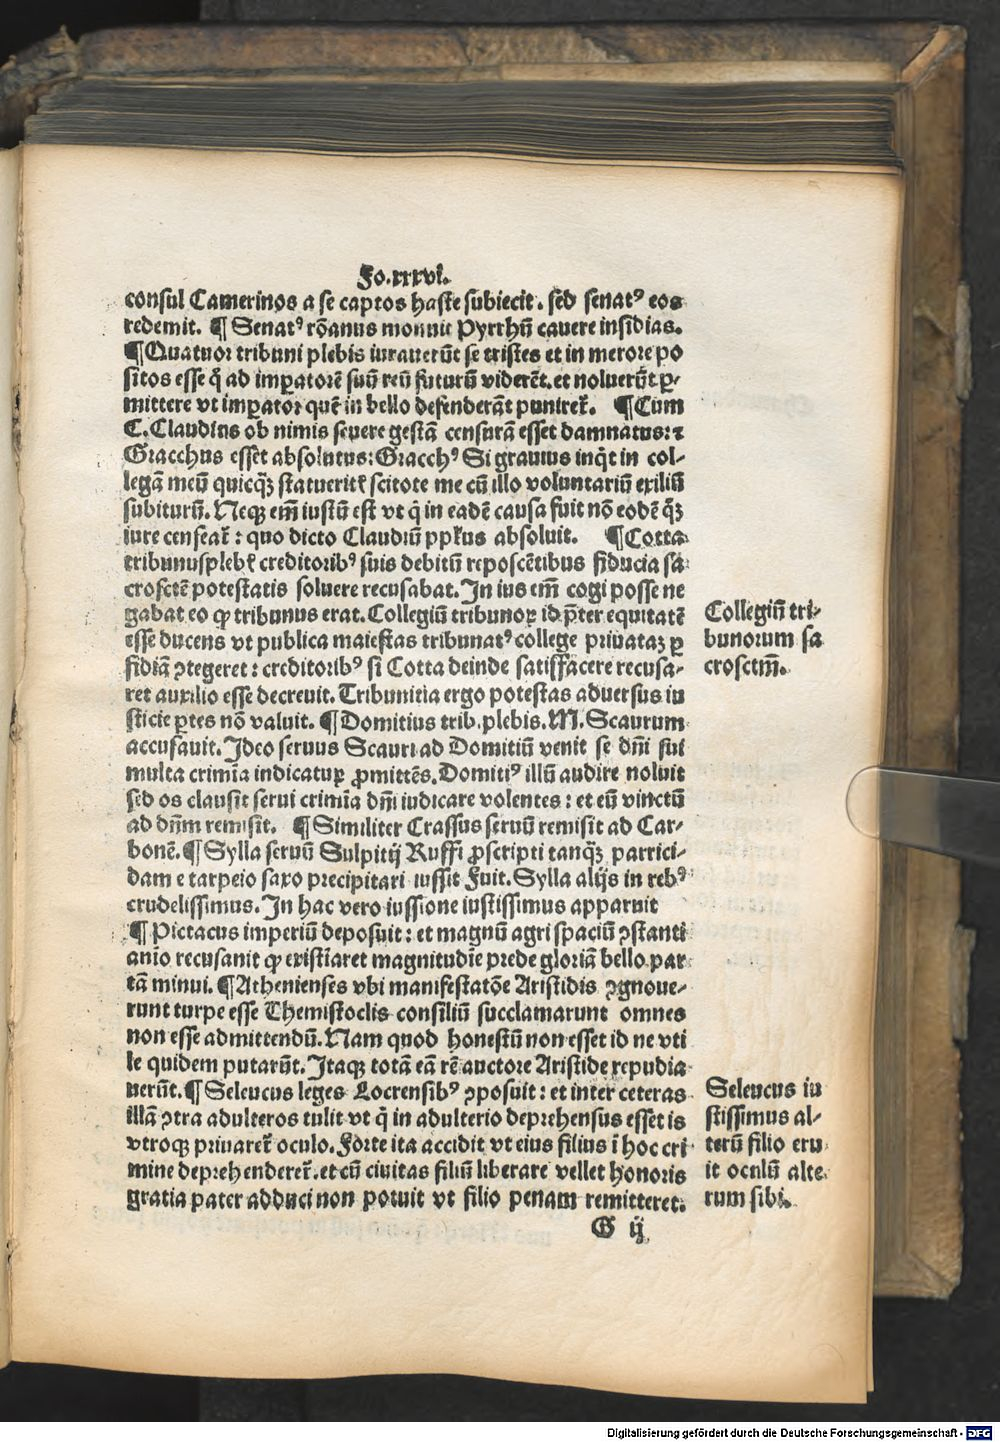 Fo.xxxvi.
consul Camerinos a se captos haste subiecit. sed senatꝰ eos
redemit. ¶ Senatꝰ rōanus monuit Pyrrhū cauere insidias.
¶ Quatuor tribuni plebis iurauerūt se tristes et in merore po
sitos esse ꝙ̄ ad imꝑatorē suū reū futurū viderēt. et noluerūt ꝑ-
mittere vt imꝑator quē in bello defenderāt puniret᷑. ¶ Cum
C. Claudius ob nimis seuere gestā censurā esset damnatus: ⁊
Gracchus esset absolutus: Gracchꝰ Si grauius inq̄t in col-
legā meū quicq̄ꝫ statuerit᷑ scitote me cū illo voluntariū exiliū
subiturū. Neqꝫ em̄ iustū est vt q̄ in eadē causa fuit nō eodē q̄ꝫ
iure censeat᷑: quo dicto Claudiū pp̄lus absoluit. ¶ Cotta
tribunusplebꝭ creditoribꝰ suis debitū reposcētibus fiducia sa
crosctē potestatis soluere recusabat. In ius em̄ cogi posse ne
gabat eo ꝙ tribunus erat. Collegiū tribunoꝝ id p̄ter equitatē
esse ducens vt publica maiestas tribunatꝰ college priuataꝫ ꝑ
fidiā ꝯtegeret: creditoribꝰ si Cotta deinde satisfacere recusa-
ret auxilio esse decreuit. Tribunitia ergo potestas aduersus iu
sticie ꝑtes nō valuit. ¶ Domitius trib. plebis. M. Scaurum
accusauit. Ideo seruus Scauri ad Domitiū venit se dn̄i sui
multa crimīa indicaturꝝ ꝓmittēs. Domitiꝰ illū audire noluit
sed os clausit serui crimīa dn̄i iudicare volentes: et eū vinctū
ad dn̄m remisit. ¶ Similiter Crassus seruū remisit ad Car-
bonē. ¶ Sylla seruū Sulpitij Ruffi ꝓscripti tanq̄ꝫ parrici-
dam e tarpeio saxo precipitari iussit Fuit. Sylla alijs in rebꝰ
crudelissimus. In hac vero iussione iustissimus apparuit
¶ Pictacus imperiū deposuit: et magnū agri spaciū ꝯstanti
anio recusauit ꝙ existīaret magnitudīe prede gloriā bello par
tā minui. ¶ Athenienses vbi manifestatōe Aristidis ꝯgnoue-
runt turpe esse Themistoclis consiliū succlamarunt omnes
non esse admittendū. Nam quod honestū non esset id ne vti
le quidem putarūt. Itaqꝫ totā eā rē auctore Aristide repudia
uerūt. ¶ Seleucus leges Locrensibꝰ ꝯposuit: et inter ceteras
illā ꝯtra adulteros tulit vt q̄ in adulterio deprehensus esset is
vtroqꝫ priuaret᷑ oculo. Forte ita accidit vt eius filius ī hoc cri
mine deprehenderet᷑. et cū ciuitas filiū liberare vellet honoris
gratia pater adduci non potuit vt filio penam remitteret.
G ij
Collegiū tri-
bunorum sa
crosctm̄.
Seleucus iu
stissimus al-
terū filio eru
it oculū alte
rum sibi.
Digitalisierung gefördert durch die Deutsche Forschungsgemeinschaft - DFG